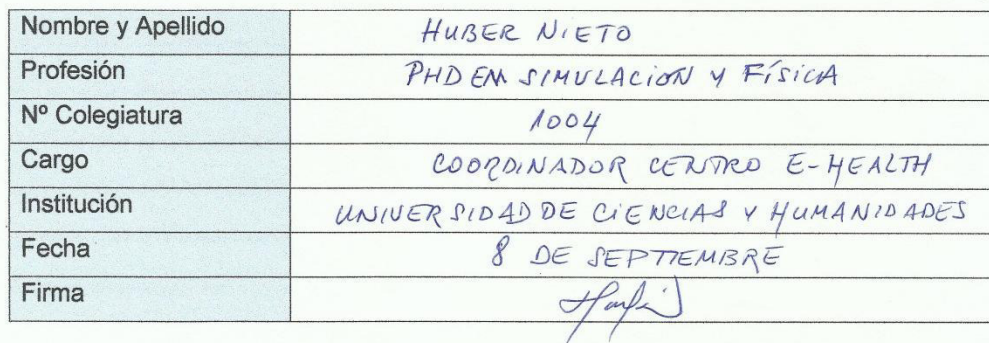 Nombre y Apellido HUBER NIETO
Profesión PHD EM SIMULACION Y FÍSICA
Nº Colegiatura 1004
Cargo COORDINADOR CENTRO E-HEALTH
Institución UNIVERSIDAD DE CIENCIAS Y HUMANIDADES
Fecha 8 DE SEPTIEMBRE
Firma